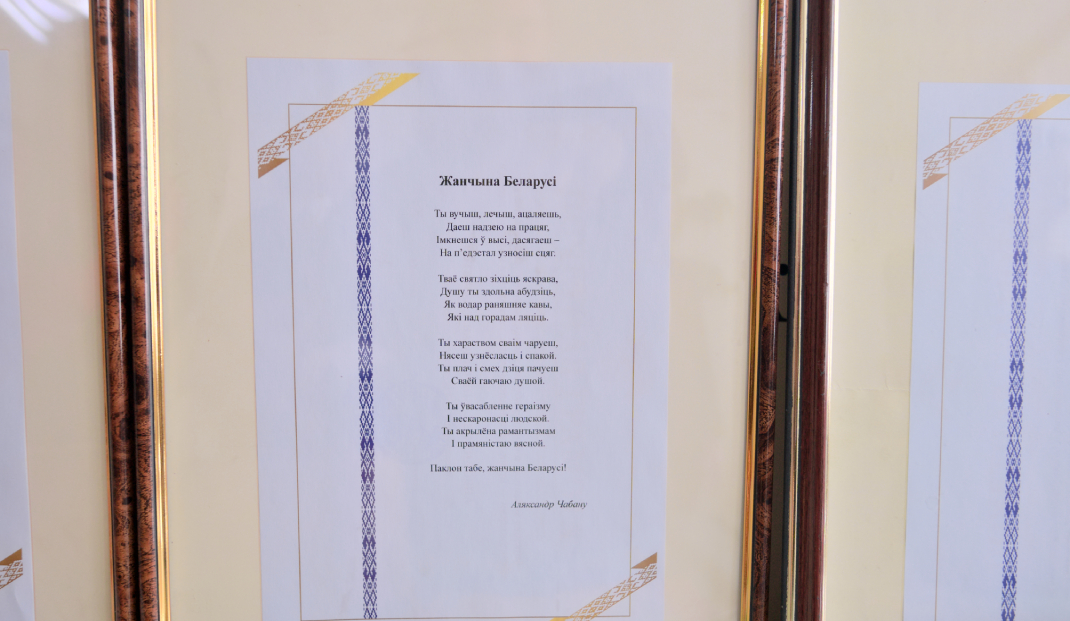 Жанчына Беларусі
Ты вучыш, лечыш, ацаляешь,
Даеш надзею на працяг,
Імкнешся ў высі, дасягаеш –
На п'едэстал узносіш сцяг.
Тваё святло зіхціць яскрава,
Душу ты здольна абудзіць,
Як водар раняшняе кавы,
Які над горадам ляціць.
Ты хараством сваім чаруеш,
Нясеш узнёсласць і спакой.
Ты плач і смех дзіця пачуеш
Сваёй гаючаю душой.
Ты ўвасабленне гераізму
І нескаронасці людской.
Ты акрылёна рамантызмам
І прамяністаю вясной.
Паклон табе, жанчына Беларусі!
Аляксандр Чабану